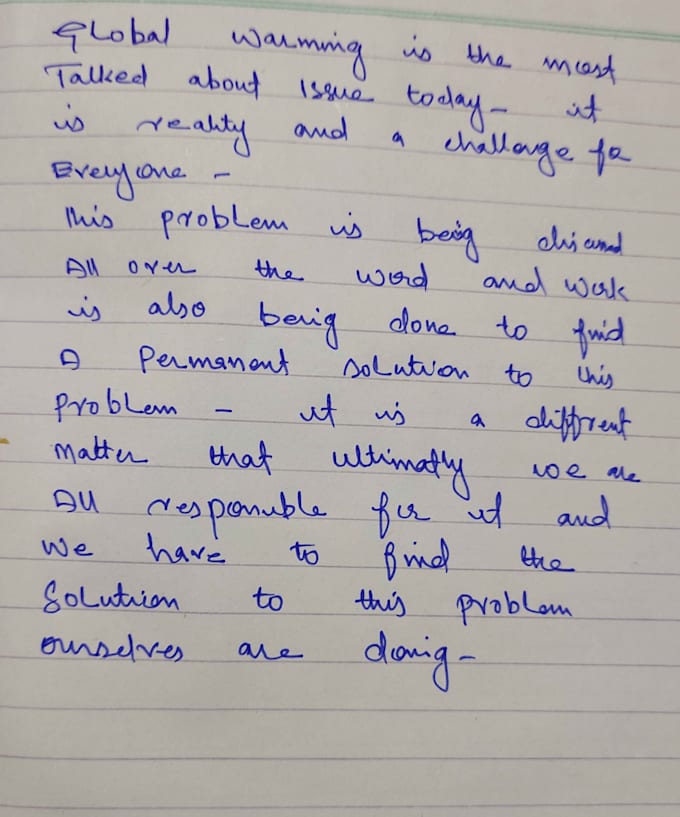 Global warming is the most
Talked about Issue today - it
is reality and a challange for
Everyone -
This problem is being
All over the word and work
is also being done to find
A Permanent solution to this
Problem - it is a diffrent
Matter that ultimatly we are
All responsible for it and
We have to find the
Solution to this problem
ourselves are doing -